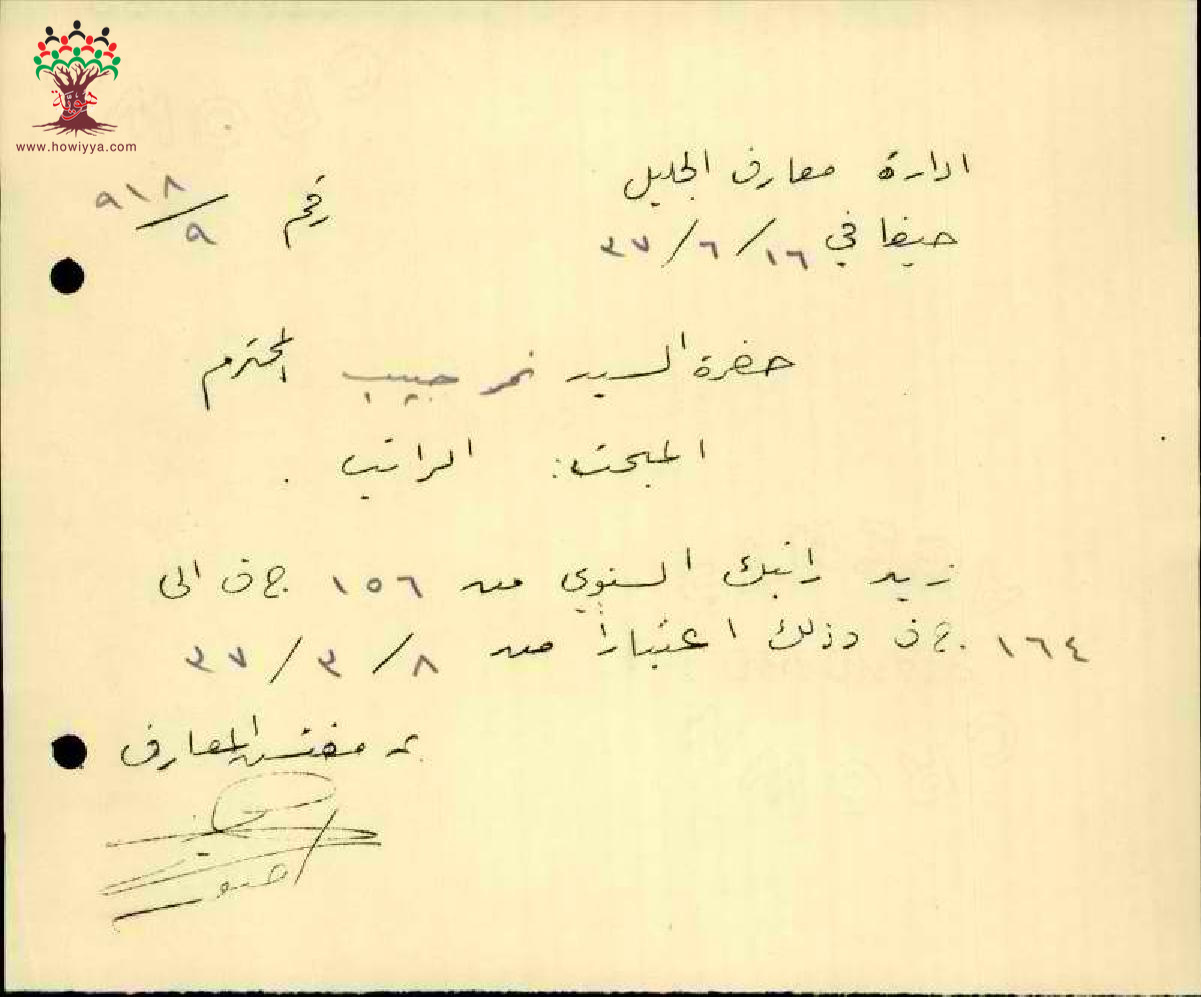 هوية
www.howiyya.com
ادارة معارف الجليل
حيفا في ١٦/٦/٣٧
رقم ٩١٨/٩
حضرة السيد نمر حبيب المحترم
المبحث: الراتب .
زيد راتبك السنوي من ١٥٦ ج ف الى
١٦٤ ج ف وذلك اعتباراً من ٨/٣/٣٧
عن مفتش المعارف